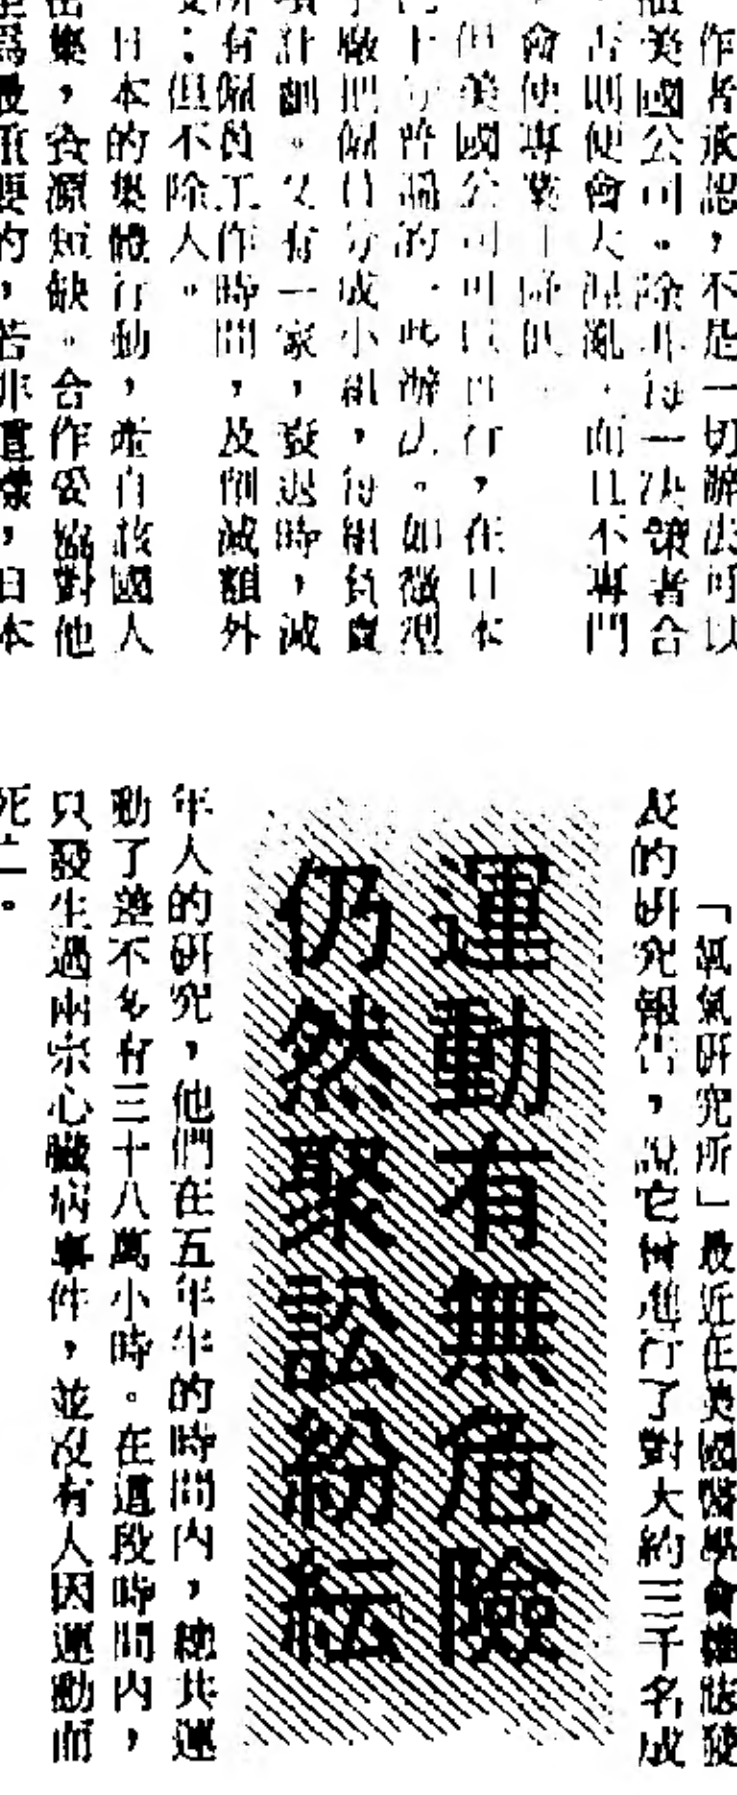 作者承認，不是一切辦法可以
美國公司。除非每一决策者合
否則便會大混亂，而且不專門
會使專業下降低。
但美國公司可以自行，在日本
十分普遍的，此辦法。如微型
廠把僱員分成小組，每組負責
計劃。又有一家，衰退時，減
有僱員工作時間，及削減額外
；但不除人。
日本的集體行動，產自該國人
樂，資源短缺。合作妥協對他
爲最重要的，若非這樣，日本
「氧氣研究所」最近在美國醫學會雜誌發
表的研究報告，說它曾進行了對大約三千名成
運動有無危險
仍然聚訟紛紜
年人的研究，他們在五年半的時間內，總共運
動了差不多有三十八萬小時。在這段時間內，
只發生過兩宗心臟病事件，並沒有人因運動而
死亡。